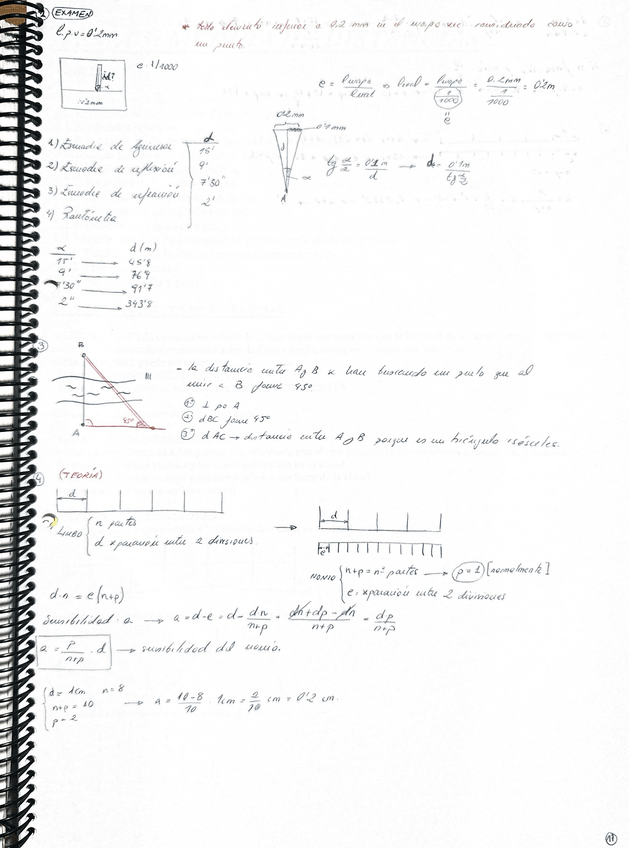 2 EXAMEN
l.p.v = 0'2mm
* todo elemento inferior a 0.2 mm en el mapa será considerado como
un punto.
e: 1/1000
d?
α
0.2mm
e = lmapa / lreal => lreal = lmapa / (1/1000) = 0.2mm / (1/1000) = 0.2m
e
1) Escuadra de
2) Escuadra de reflexión
3) Escuadra de refracción
4) Pantómetra
α
15'
9'
7'30"
2'
0.2mm
0.1mm
d
α
A
tg α/2 = 0.1m / d → d = 0.1m / tg α/2
α d (m)
15' → 45'8
9' → 76'9
7'30" → 91'7
2" → 343'8
3
B
A
45º
- La distancia entre A y B se hace buscando un punto que al
unir a B forme 45º
1º ⊥ por A
2º dBC forme 45º
3º dAC → distancia entre A y B porque es un triángulo isósceles.
4 (TEORÍA)
d
LIMBO { n partes
d separación entre 2 divisiones.
→
d
e
NONIO { n+p = nº partes → p=1 [normalmente]
e: separación entre 2 divisiones
d·n = e(n+p)
Sensibilidad: a → a = d-e = d - dn/n+p = dn+dp-dn / n+p = dp/n+p
a = p/n+p · d → sensibilidad del nonio.
{ d = 1cm n = 8
n+p = 10
p = 2
→ a = 10-8/10 · 1cm = 2/10 cm = 0'2 cm.
11